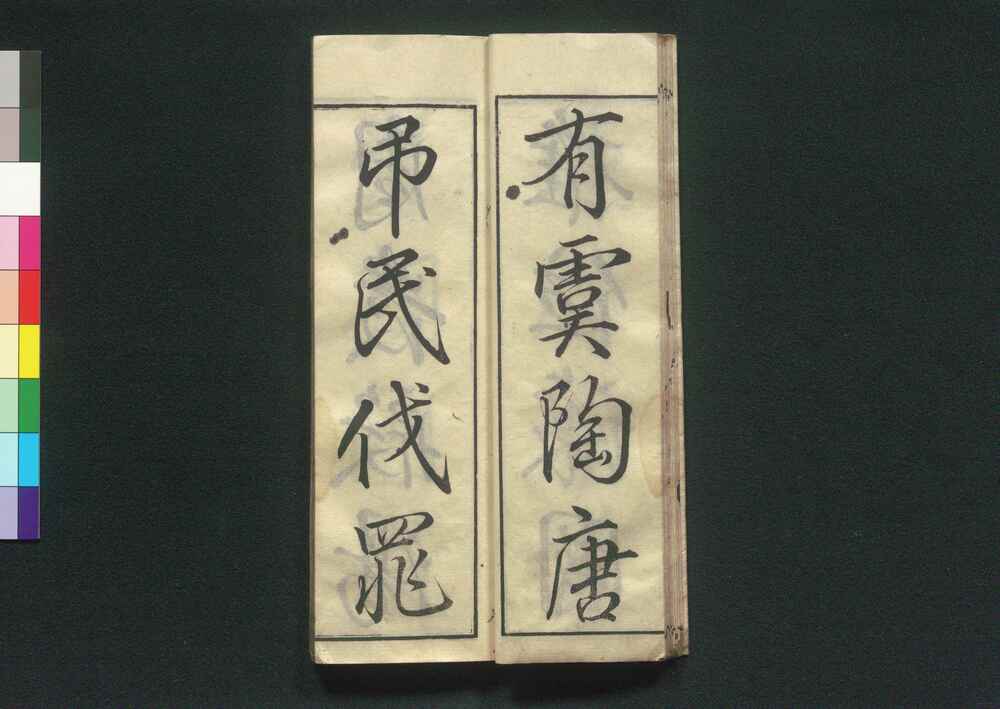 有虞陶唐
弔民伐罪